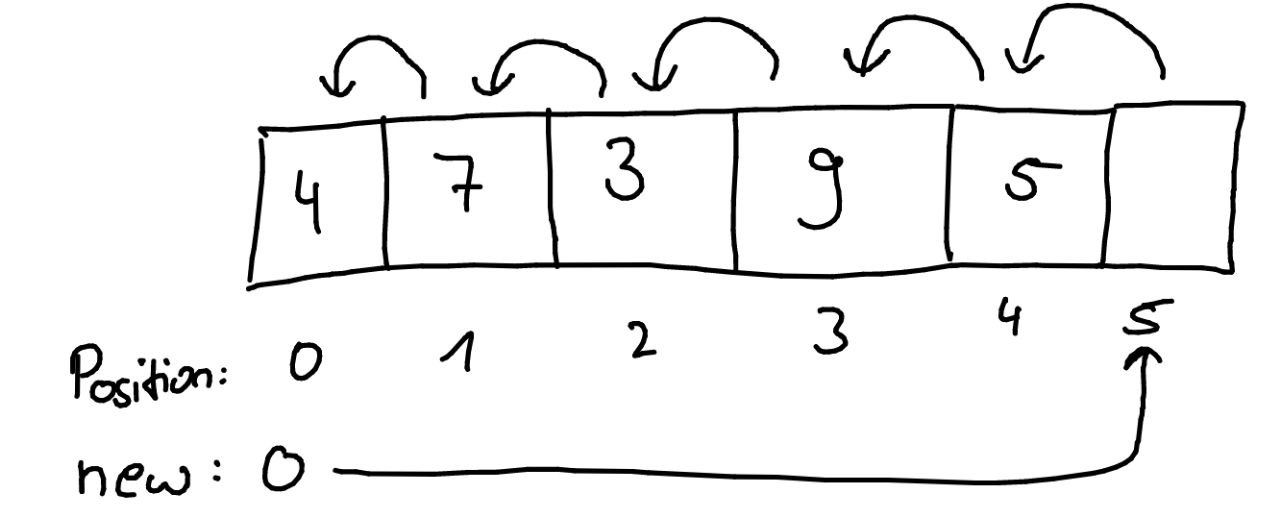 4 7 3 9 5
Position: 0 1 2 3 4 5
new: 0